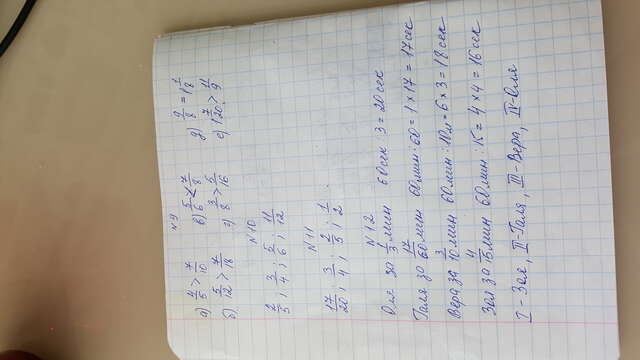 №9
а) 4/5 > 7/10 в) 5/6 < 7/8 д) 9/8 = 1 1/8
б) 5/12 > 7/18 г) 3/8 > 5/16 е) 1 7/20 > 11/9
№10
2/5; 3/4; 5/6; 11/12
№11
17/20; 3/4; 2/5; 1/2
№12
Оля за 1/3 мин 60сек 3 = 20 сек
Галя за 17/60 мин 60мин : 60 = 1 × 17 = 17сек
Вера за 3/10 мин 60мин : 10 = 6 × 3 = 18 сек
Зоя за 4/15 мин 60мин : 15 = 4 × 4 = 16 сек
I - Зоя, II - Галя, III - Вера, IV - Оля